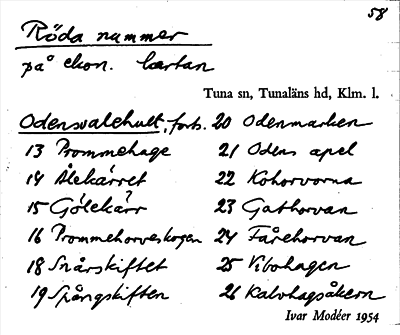 58
Röda nummer
på ekon. kartan
Tuna sn, Tunaläns hd, Klm. l.
Odensvalehult, forts. 20 Odenmarken
13 Prommehage 21 Odens apel
14 Ålekärret 22 Kohorvorna
15 Gölekärr 23 Gathorvan
16 Prommehorveskogen 24 Fårehorvan
18 Snårskiftet 25 Vibohagen
19 Spångskiften 26 Kalvhagsåkern
Ivar Modéer 1954